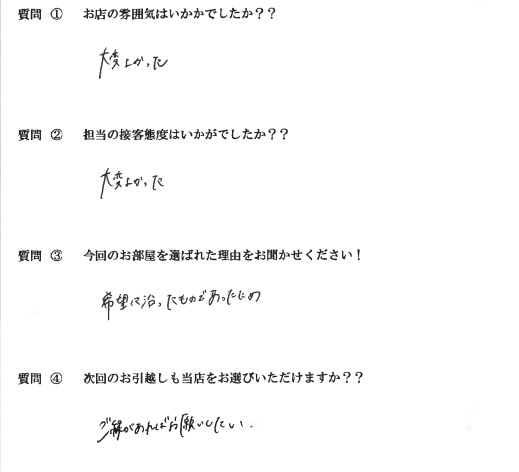 質問 ① お店の雰囲気はいかかでしたか??
大変よかった
質問 ② 担当の接客態度はいかがでしたか??
大変よかった
質問 ③ 今回のお部屋を選ばれた理由をお聞かせください!
希望に沿ったものであったため
質問 ④ 次回のお引越しも当店をお選びいただけますか??
ご縁があればお願いしたい.